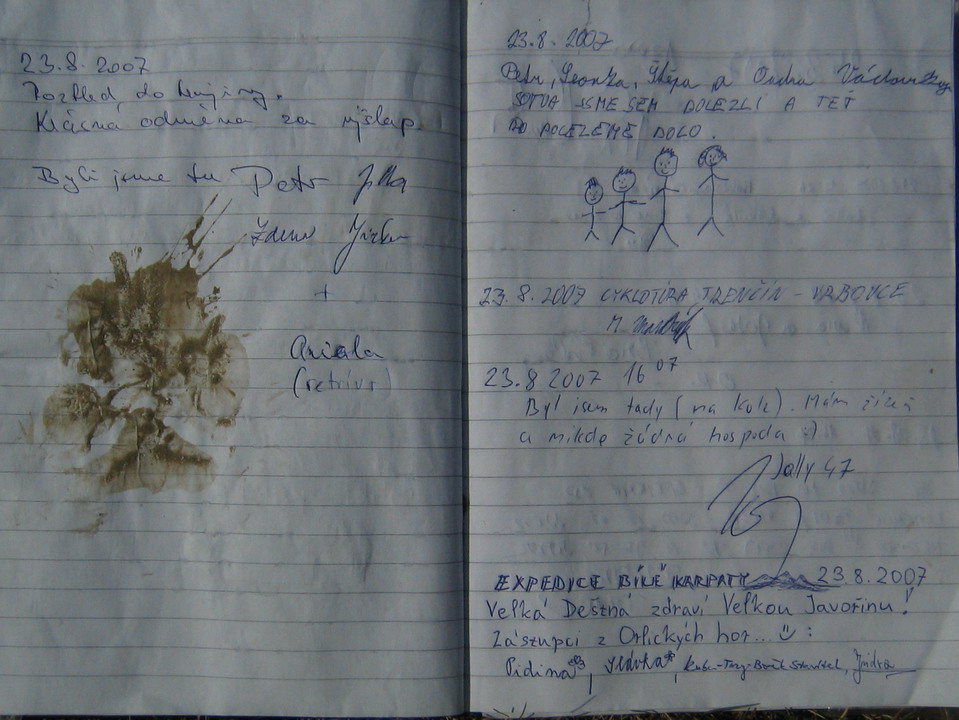 23.8.2007
Pozhled do krajiny.
Krásná odměna za výšlap.
Byli jsme tu Petr Jitka
Zdena Jirka
+
Ariela
(retrívr)
23.8.2007
Petr, Lenka, Štěpa a Ondra
SOTVA JSME SEM DOLEZLI A TEĎ
POLEZEME DOLŮ.
23.8.2007 CYKLOTÚRA TRENČÍN - VRBOVCE
M.
23.8 2007 16 07
Byl jsem tady (na kole). Mám žízeň
a nikde žádná hospoda :)
Jolly 47
EXPEDICE BÍLÉ KARPATY 23.8.2007
Velká Deštná zdraví Velkou Javořinu!
Zástupci z Orlických hor... :
Pidina, Slávka, Jindra